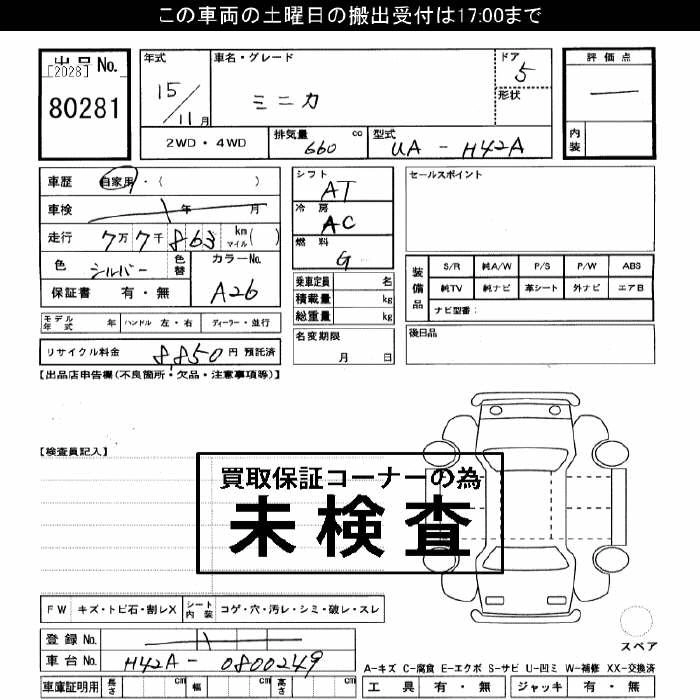 この車両の土曜日の搬出受付は17:00まで
出品 No.
[2028]
80281
年式 15/11月
車名・グレード ミニカ
ドア 5
形状
評価点 —
内装
2WD・4WD
排気量 660 cc
型式 UA - H42A
車歴 自家用・( )
車検 年 月
走行 7万7千863 km マイル( )
色 シルバー 色替
カラーNo. A26
保証書 有・無
シフト AT
冷房 AC
燃料 G
乗車定員 名
積載量 kg
総重量 kg
セールスポイント
装備品
S/R 純A/W P/S P/W ABS
純TV 純ナビ 革シート 外ナビ エアB
ナビ型番:
モデル年式 年 ハンドル 左・右 ディーラー・並行
名変期限 月 日
後日品
リサイクル料金 8,850 円 預託済
【出品店申告欄(不良箇所・欠品・注意事項等)】
【検査員記入】
買取保証コーナーの為
未検査
FW キズ・トビ石・割レX
シート内装 コゲ・穴・汚レ・シミ・破レ・スレ
登録 No.
車台 No. H42A - 0800249
スペア
A-キズ C-腐食 E-エクボ S-サビ U-凹ミ W-補修 XX-交換済
車庫証明用 長さ cm 幅 cm 高さ cm
工具 有・無 ジャッキ 有・無